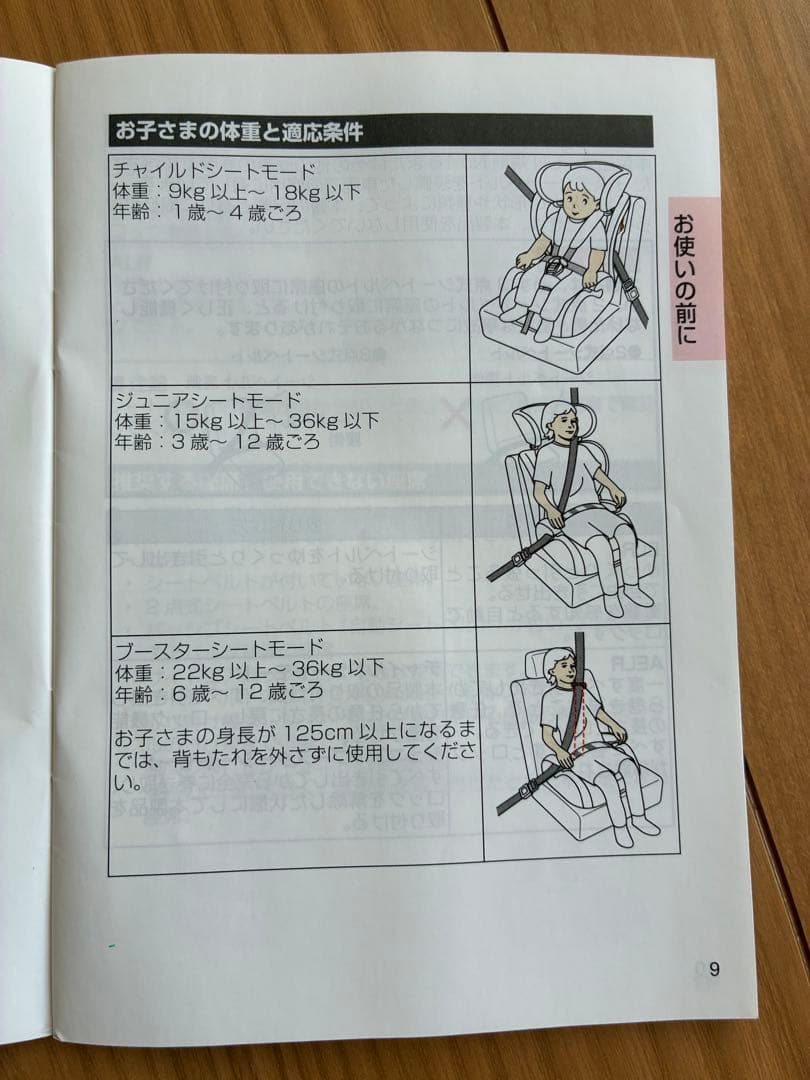 お子さまの体重と適応条件
チャイルドシートモード
体重：9kg 以上〜 18kg 以下
年齢：1 歳〜 4 歳ごろ
ジュニアシートモード
体重：15kg 以上〜 36kg 以下
年齢：3 歳〜 12 歳ごろ
ブースターシートモード
体重：22kg 以上〜 36kg 以下
年齢：6 歳〜 12 歳ごろ
お子さまの身長が 125cm 以上になるま
では、背もたれを外さずに使用してくださ
い。
お使いの前に
9